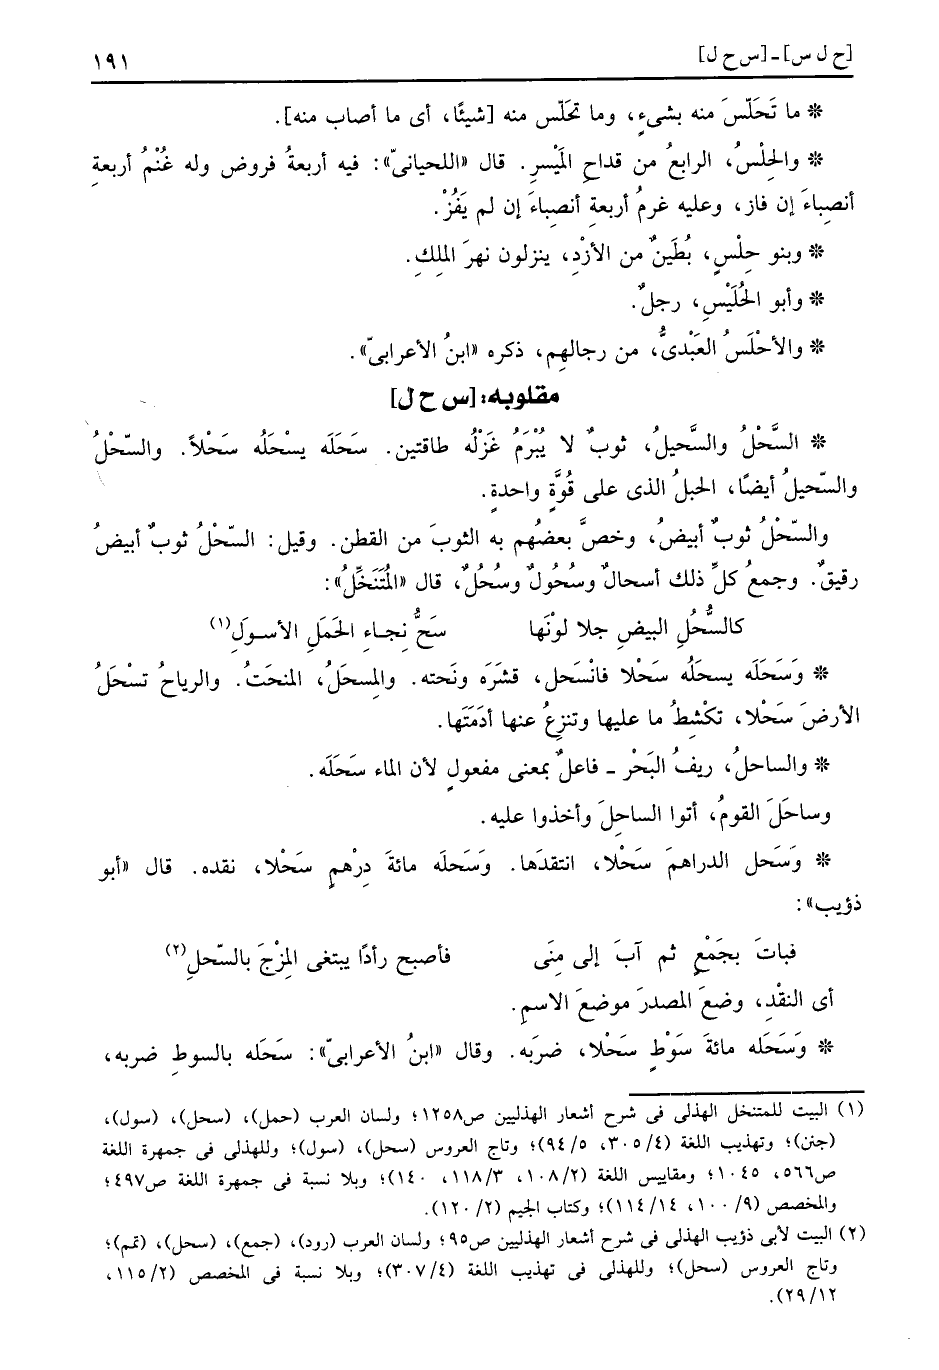 [ح ل س] ـ [س ح ل] ١٩١
* ما تَحَلّسَ منه بشىءٍ، وما تَحَلّس منه [شيئًا، أى ما أصاب منه].
* والحِلْسُ، الرابعُ من قداحِ المَيْسرِ. قال «اللحيانىّ»: فيه أربعةُ فروض وله غُنْمُ أربعةِ
أنصِباءَ إن فاز، وعليه غرمُ أربعةِ أنصِباءَ إن لم يَفُزْ.
* وبنو حِلْسٍ، بُطَينٌ من الأزْدِ، ينزلون نهرَ المِلِكِ.
* وأبو الحُلَيْسِ، رجلٌ.
* والأحْلَسُ العَبْدىُّ، من رجالهِم، ذكره «ابنُ الأعرابىّ».
مقلوبه: [س ح ل]
* السَّحْلُ والسَّحيلُ، ثوبٌ لا يُبْرَمُ غَزْلُه طاقتين. سَحَلَه يسْحَلُه سَحْلاً. والسّحْلُ
والسّحيلُ أيضًا، الحبلُ الذى على قُوَّةٍ واحدةٍ.
والسّحْلُ ثوبٌ أبيضُ، وخصَّ بعضُهم به الثوبَ من القطن. وقيل: السّحْلُ ثوبٌ أبيضُ
رقيقٌ. وجمعُ كلِّ ذلك أسحالٌ وسُحُولٌ وسُحُلٌ، قال «المُتَنَخِّلُ»:
كالسُّحُلِ البيضِ جلا لوْنَها سَحُّ نِجاءِ الحَمَلِ الأسولَِ(١)
* وَسَحَلَه يسحلُه سَحْلا فانْسَحل، قشرَه ونَحته. والمِسحَلُ، المنحَتُ. والرياحُ تسْحَلُ
الأرضَ سَحْلا، تكْشطُ ما عليها وتنزعُ عنها أدَمَتَها.
* والساحلُ، ريفُ البَحْر ـ فاعلٌ بمعنى مفعولٍ لأن الماء سَحَلَه.
وساحَلَ القومُ، أتوا الساحِلَ وأخذوا عليه.
* وَسَحل الدراهمَ سَحْلا، انتقدَها. وَسَحلَه مائةَ دِرْهمٍ سَحْلا، نقده. قال «أبو
ذؤيب»:
فباتَ بجَمْعٍ ثم آبَ إلى مِنًى فأصبح رأدًا يبتغى المِزْجَ بالسّحلِ(٢)
أى النقْدِ، وضعَ المصدرَ موضعَ الاسمِ.
* وَسَحَله مائةَ سَوْطٍ سَحْلا، ضربَه. وقال «ابنُ الأعرابىّ»: سَحَله بالسوطِ ضربه،
(١) البيت للمتنخل الهذلى فى شرح أشعار الهذليين ص١٢٥٨؛ ولسان العرب (حمل)، (سحل)، (سول)،
(جنن)؛ وتهذيب اللغة (٣٠٥/٤، ٩٤/٥)؛ وتاج العروس (سحل)، (سول)؛ وللهذلى فى جمهرة اللغة
ص٥٦٦، ١٠٤٥؛ ومقاييس اللغة (١٠٨/٢، ١١٨/٣، ١٤٠)؛ وبلا نسبة فى جمهرة اللغة ص٤٩٧؛
والمخصص (١٠٠/٩، ١١٤/١٤)؛ وكتاب الجيم (١٢٠/٢).
(٢) البيت لأبى ذؤيب الهذلى فى شرح أشعار الهذليين ص٩٥؛ ولسان العرب (رود)، (جمع)، (سحل)، (تمم)؛
وتاج العروس (سحل)؛ وللهذلى فى تهذيب اللغة (٣٠٧/٤)؛ وبلا نسبة فى المخصص (١١٥/٢،
٢٩/١٢).